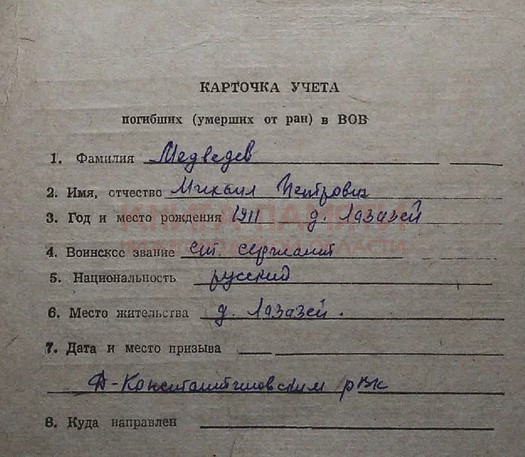 КАРТОЧКА УЧЕТА
погибших (умерших от ран) в ВОВ
1. Фамилия Медведев
2. Имя, отчество Михаил Петрович
3. Год и место рождения 1911 д. Лазазей
4. Воинское звание ст. сержант
5. Национальность русский
6. Место жительства д. Лазазей.
7. Дата и место призыва
Д-Константиновским рвк
8. Куда направлен